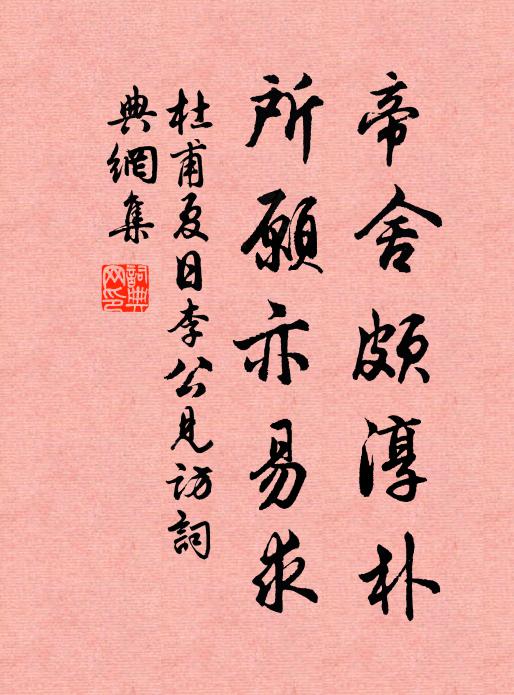 帝舍頗淳朴
所願亦易求
杜甫夏日李公見訪詞
典網集
詞典
网印